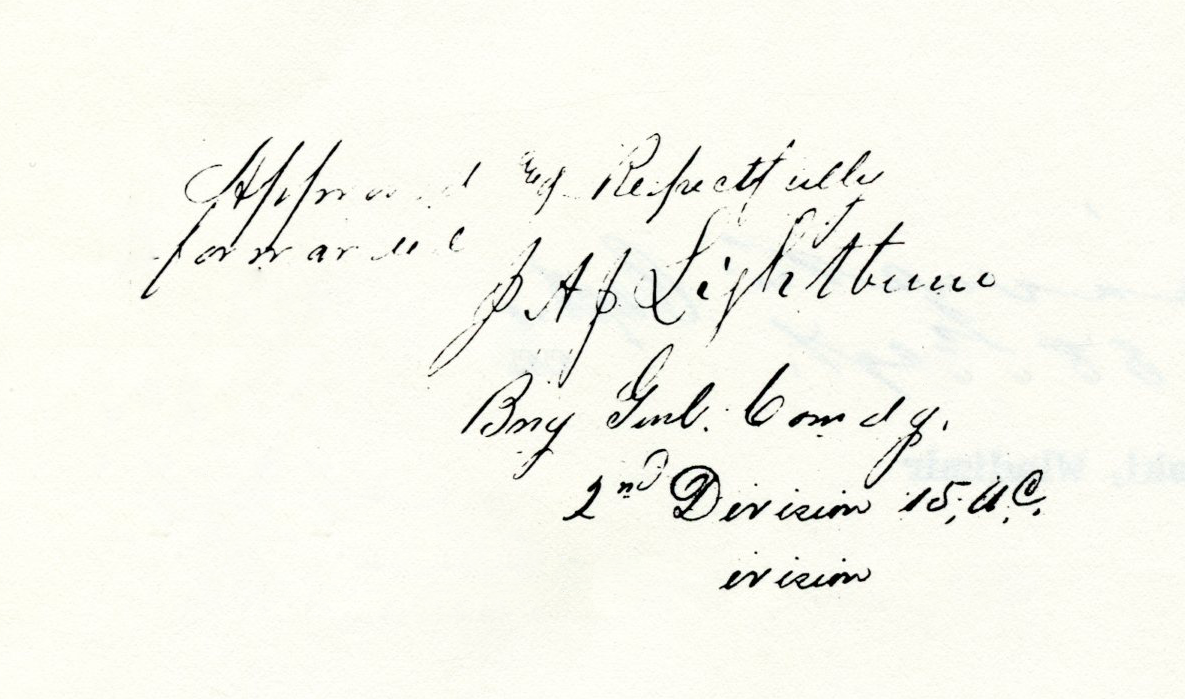 Approved and Respectfully
forwarded
J A J Lightburn
Brig Genl. Comdg.
2nd Division 15, A.C.
ivision